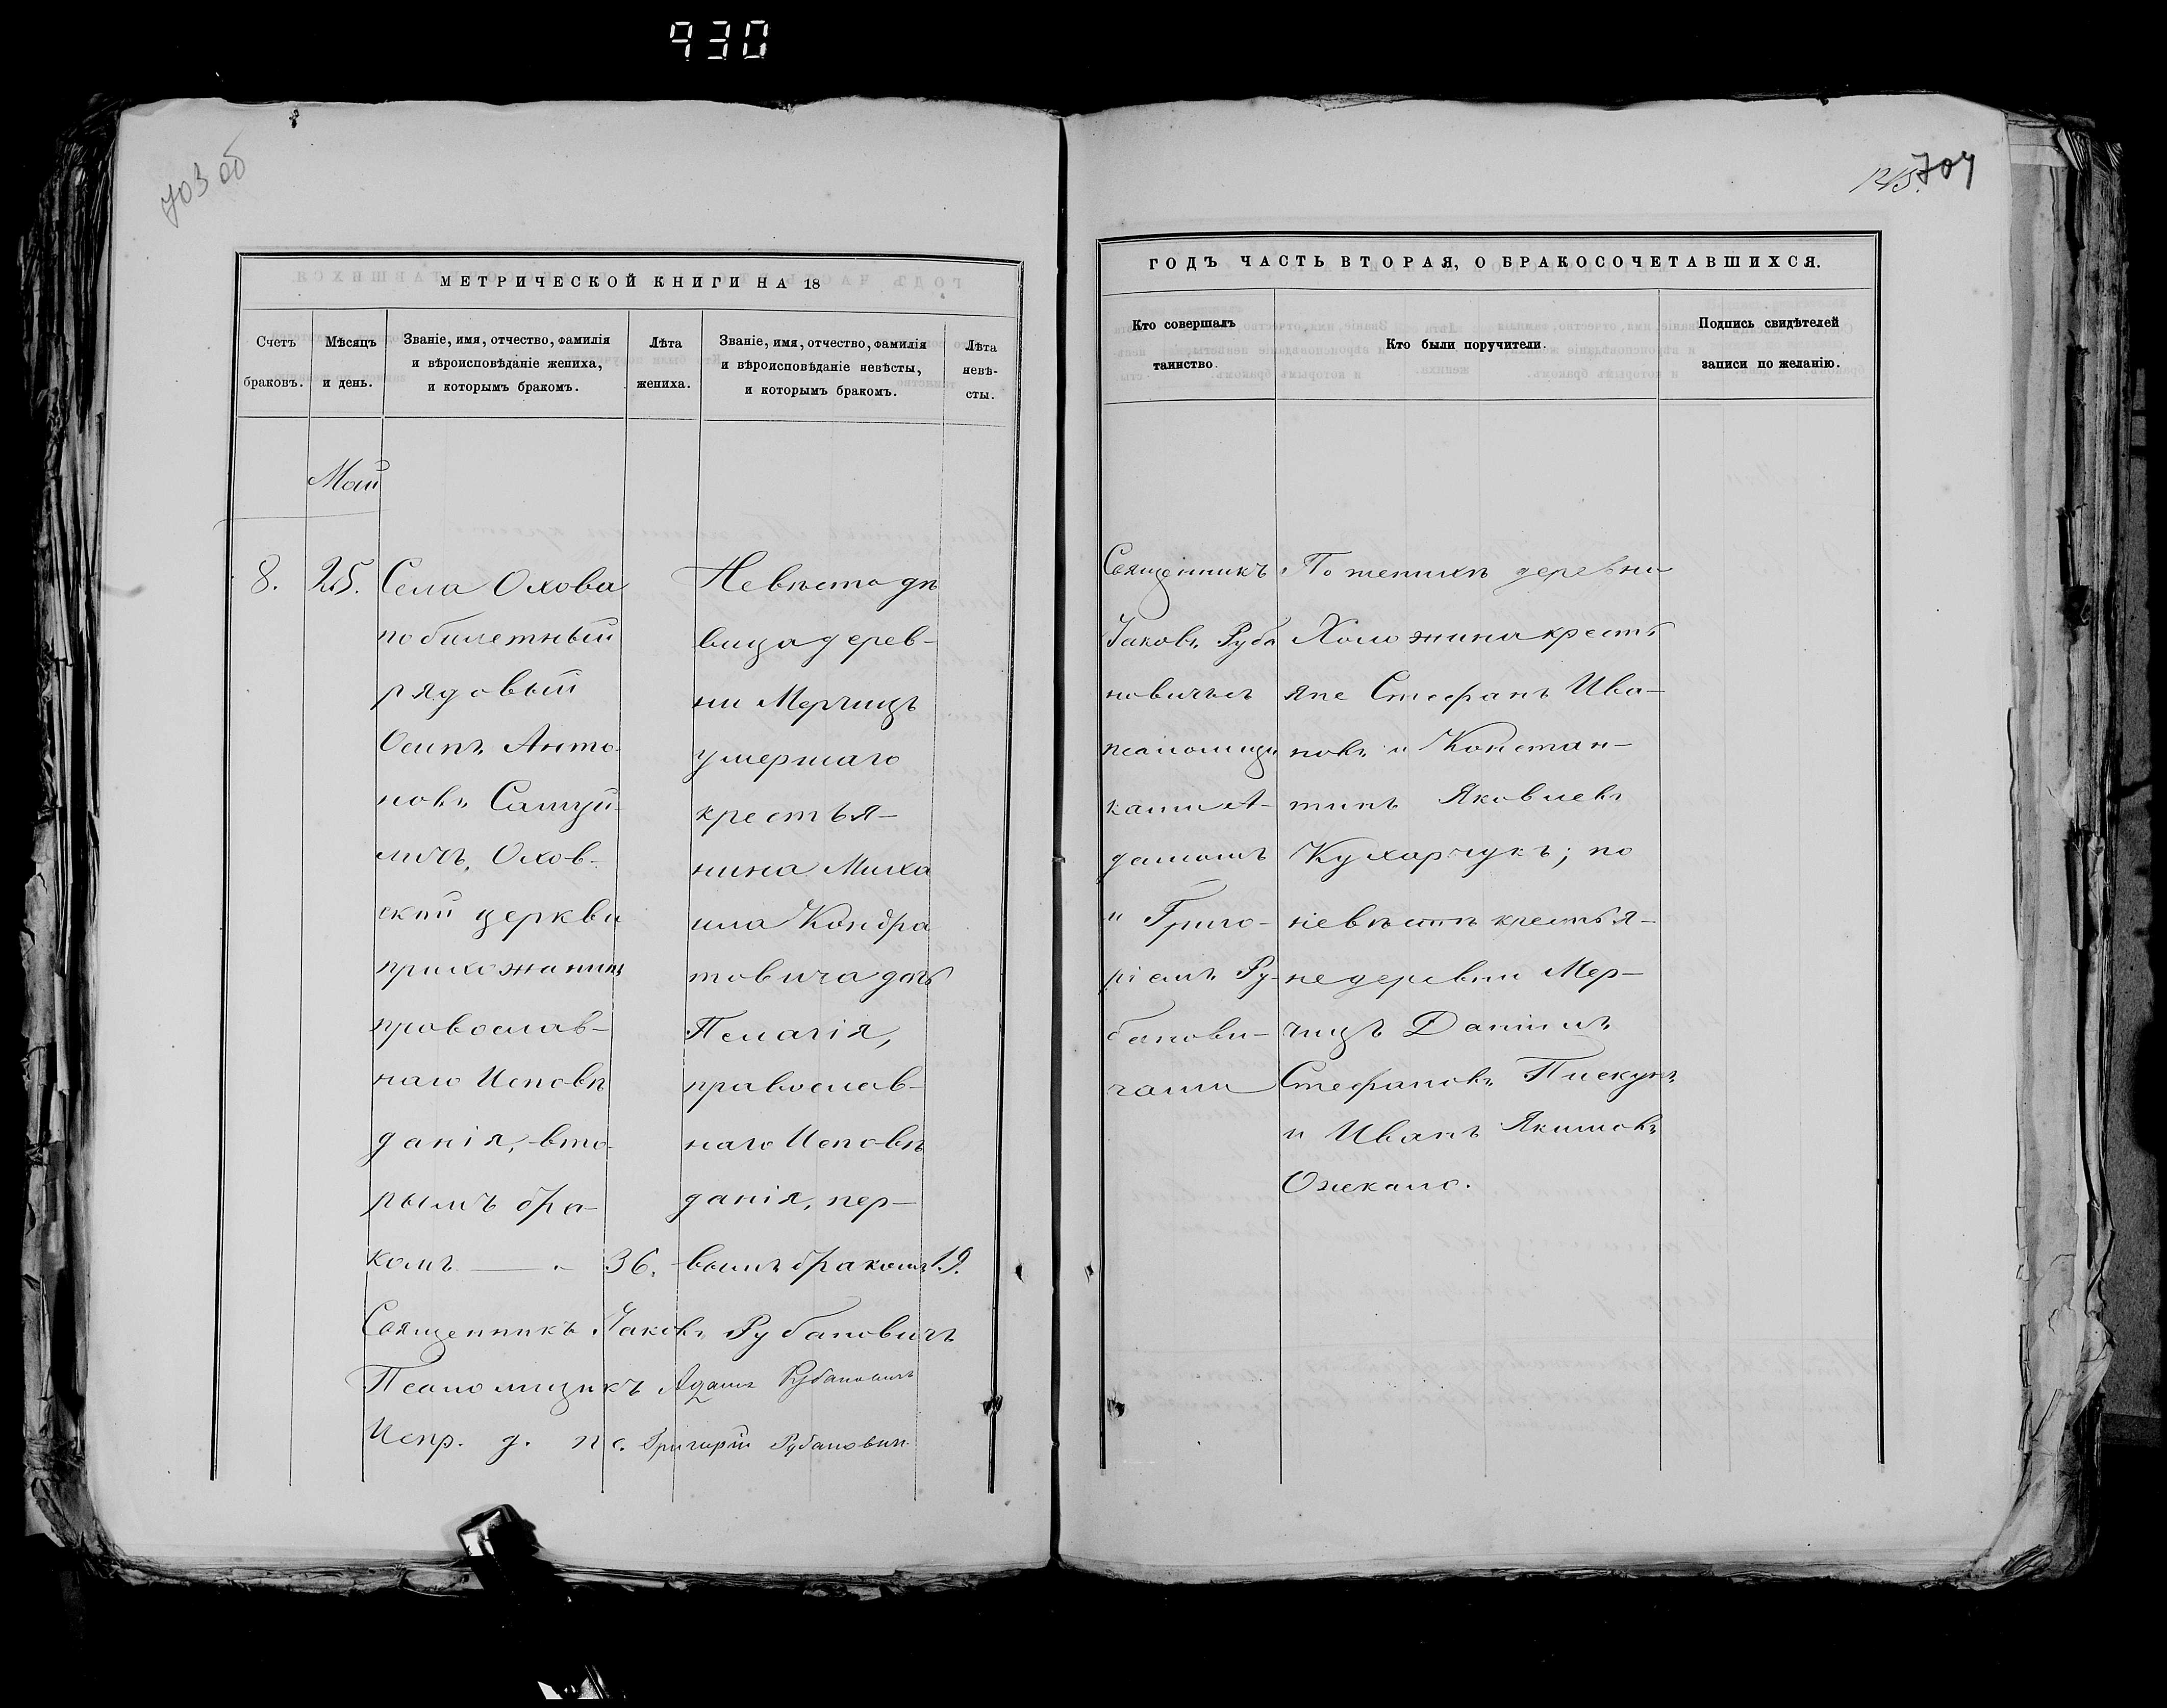 930
703 об
704
МЕТРИЧЕСКОЙ КНИГИ НА 18
Счетъ браковъ.
Мѣсяцъ и день.
Званіе, имя, отчество, фамилія
и вѣроисповѣданіе жениха,
и которымъ бракомъ.
Лѣта жениха.
Званіе, имя, отчество, фамилія
и вѣроисповѣданіе невѣсты,
и которымъ бракомъ.
Лѣта невѣ-
сты.
Май
8.
25.
Села Охова
побилетный
рядовый
Осипъ Анто-
новъ Самуй-
личъ, Охов-
ской церкви
прихожанинъ
православ-
наго Исповѣ
данія, вто-
рымъ бра-
комъ
36.
Невѣста дѣ
вица дерев-
ни Мерчицъ
умершаго
крестья-
нина Миха
ила Кондра
товича дочь
Пелагія,
православ-
наго Исповѣ
данія, пер-
вымъ бракомъ
19.
Священникъ Іаковъ Рубановичъ
Псаломщикъ Адамъ Рубановичъ
Испр. д. пс. Григорій Рубановичъ
ГОДЪ ЧАСТЬ ВТОРАЯ, О БРАКОСОЧЕТАВШИХСЯ.
Кто совершалъ
таинство.
Кто были поручители.
Подпись свидѣтелей
записи по желанію.
Священникъ
Іаковъ Руба
новичъ съ
псаломщи
ками А-
дамомъ
и Григо-
ріемъ Ру-
банови-
чами
По женихѣ деревни
Холожина кресть
яне Стефанъ Ива-
новъ и Констан-
тинъ Яковлевъ
Кухарчукъ; по
невѣстѣ крестья-
не деревни Мер-
чицъ Даніилъ
Стефановъ Пискунъ
и Иванъ Якимовъ